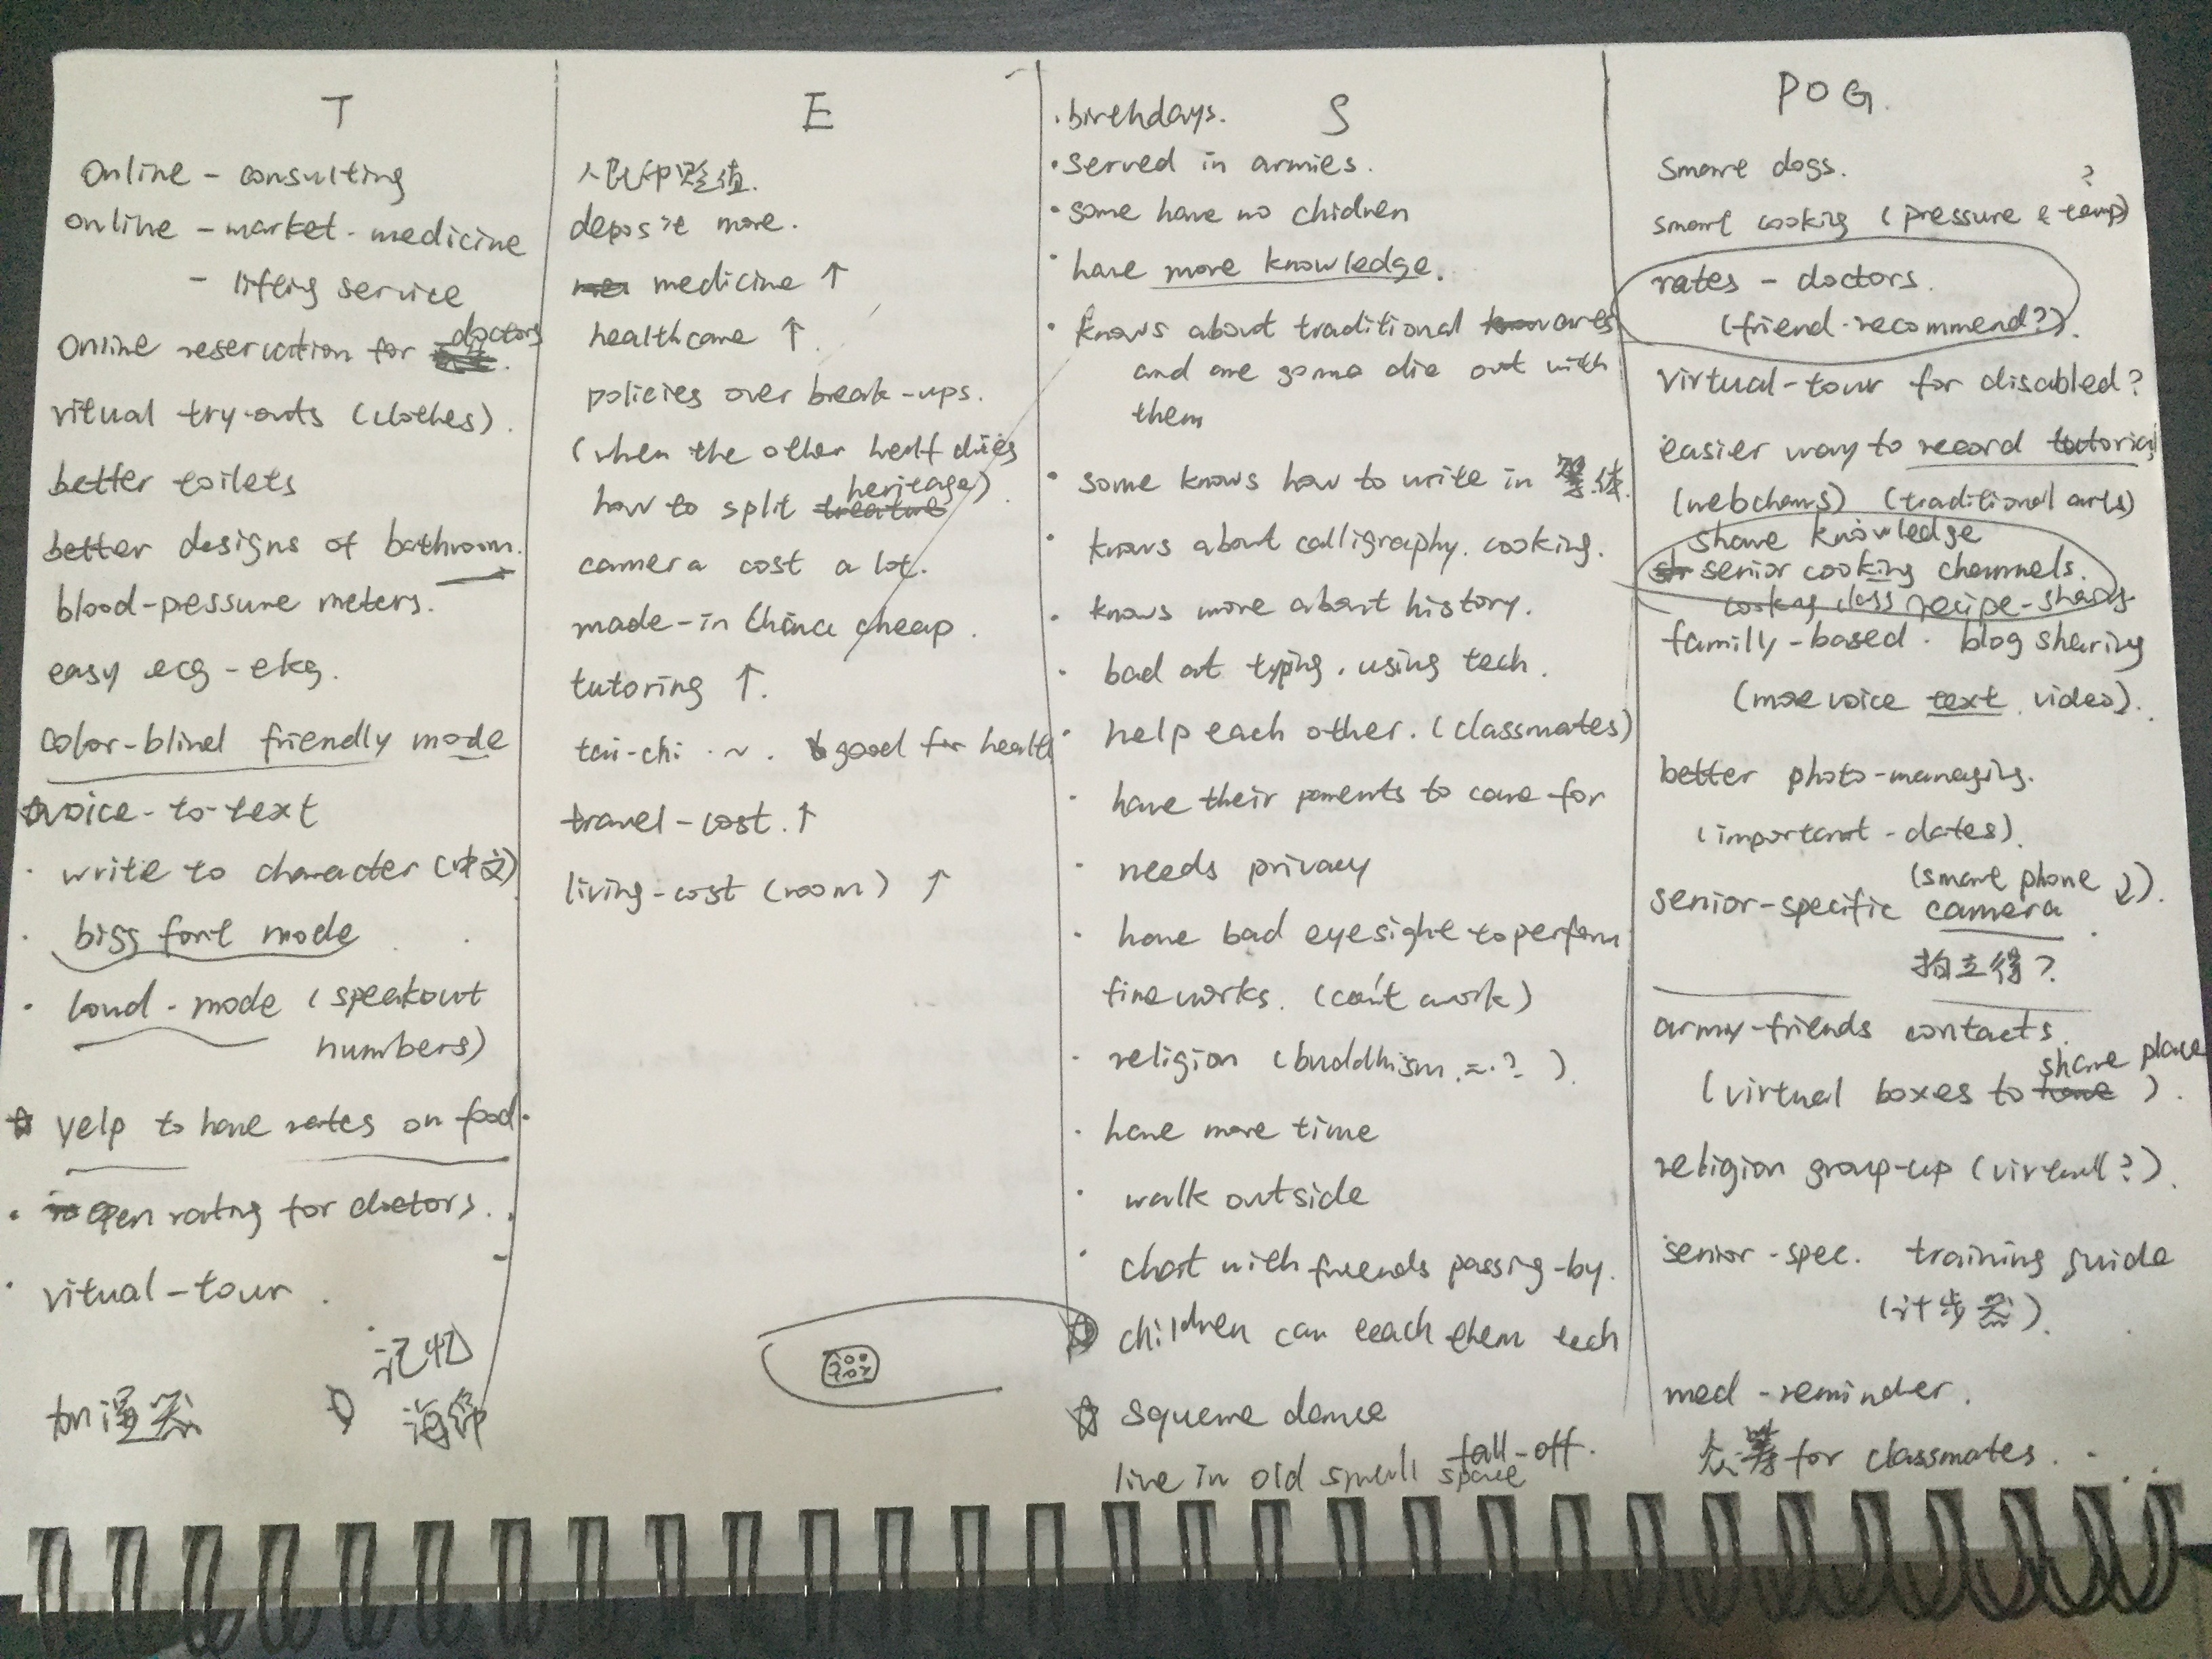 T
Online - consulting
online - market - medicine
- lifting service
Online reservation for doctors
vitual try-outs (clothes).
better toilets
better designs of bathroom.
blood-pressure meters.
easy ecg - ekg.
color-blind friendly mode
voice-to-text
· write to character (中文)
· bigg font mode
· loud - mode (speakout
numbers)
☆ yelp to have rates on food.
· open rating for doctors.
· vitual-tour.
记忆
加湿器
海绵
E
人民币贬值.
deposit more.
medicine ↑
healthcare ↑.
policies over break-ups.
(when the other half dies
how to split heritage)
camera cost a lot.
made-in China cheap.
tutoring ↑.
tai-chi · ~. good for health
travel-cost.↑
living-cost (room) ↑
S
· birthdays.
· served in armies.
· some have no chidren
· have more knowledge.
· knows about traditional arts
and are gonna die out with
them
· some knows how to write in 繁体.
· knows about calligraphy. cooking.
· knows more about history.
· bad at typing, using tech.
· help each other. (classmates)
· have their parents to care for
· needs privacy
· have bad eyesight to perform
fine works. (can't work)
· religion (buddhism. =.? ).
· have more time
· walk outside
· chat with friends passing-by.
☆ children can teach them tech
☆ square dance
fall-off.
live in old small space
POG.
smart dogs.
smart cooking (pressure & temp)?
rates - doctors.
(friend-recommend?).
virtual-tour for disabled?
easier way to record tutorial
(webchams) (traditional arts)
share knowledge
senior cooking channels.
cooking class recipe-sharing
familly-based. blog sharing
(more voice text video).
better photo-managing.
(important-dates).
(smart phone ↓).
senior-specific camera
拍立得?
army-friends contacts.
(virtual boxes to share place).
religion group-up (virtual?).
senior-spec. training guide
(计步器).
med-reminder.
众筹 for classmates.